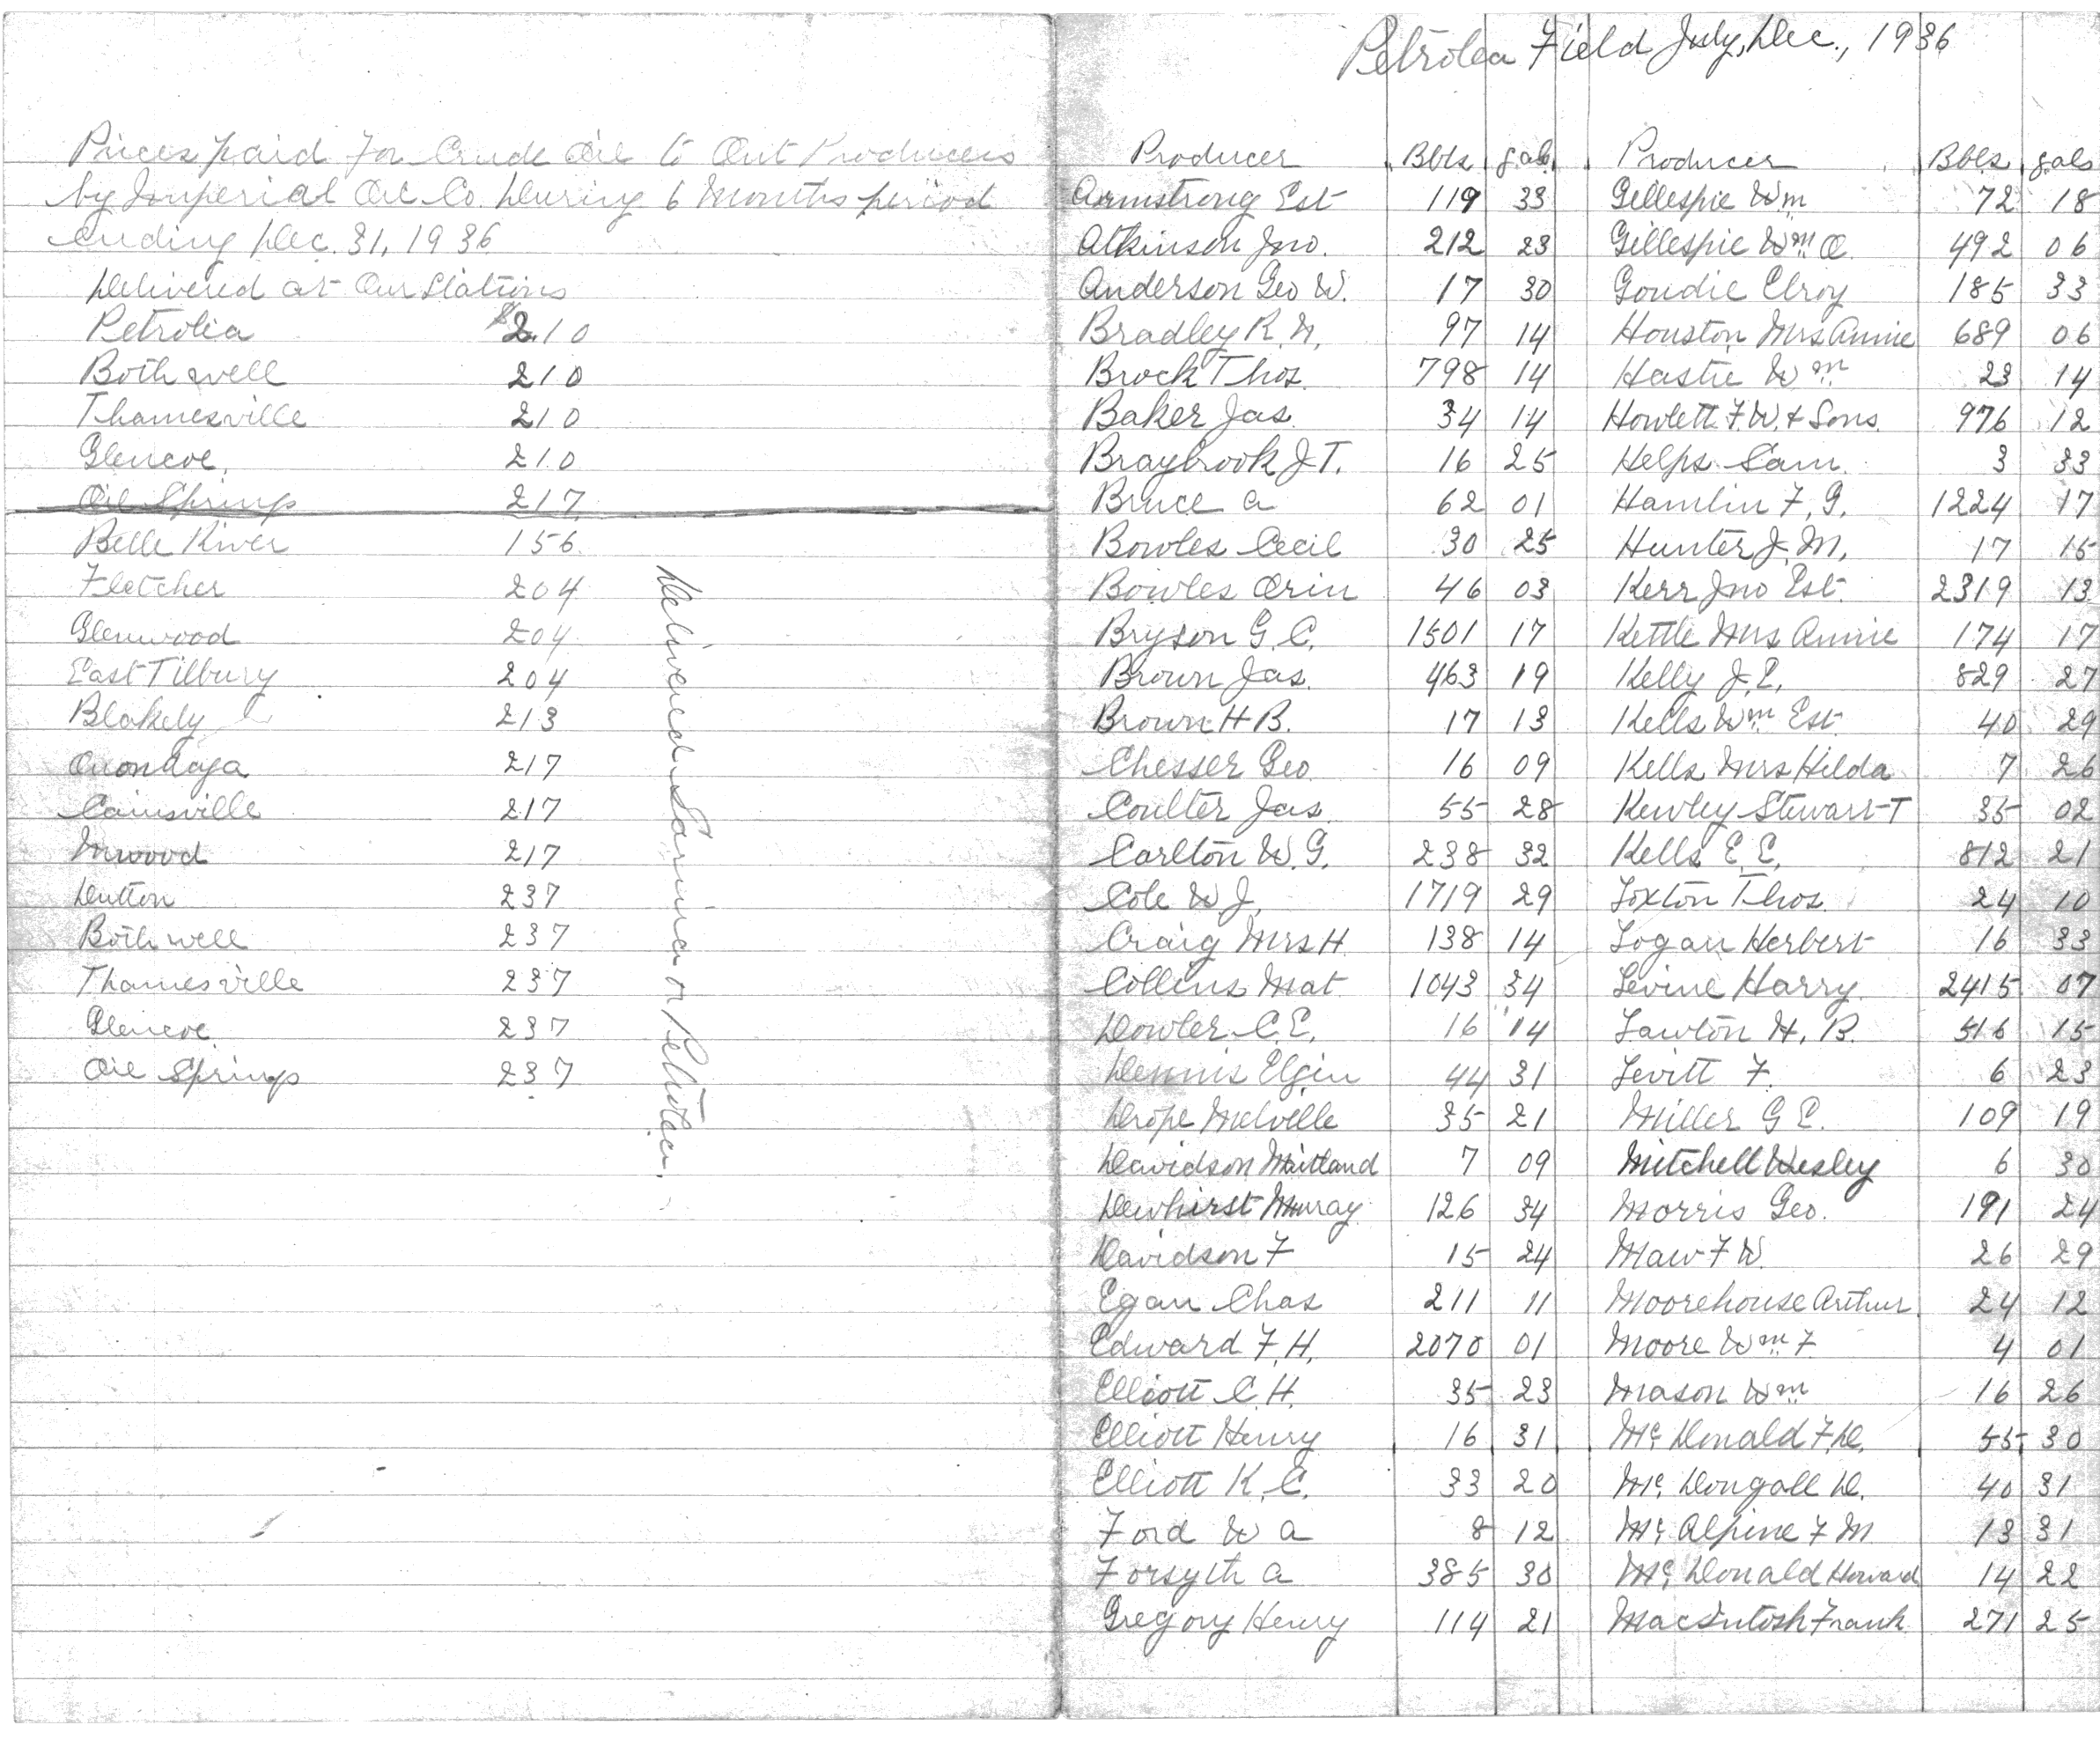 Prices paid for Crude Oil to Out Producers
by Imperial Oil Co. During 6 Months period
ending Dec. 31, 1936
Delivered at Our Stations
Petrolia $2.10
Bothwell 210
Thamesville 210
Glencoe. 210
Oil Springs 217
Belle River 156
Fletcher 204
Glenwood 204
East Tilbury 204
Blakely 213
Onondaga 217
Cainsville 217
Inwood 217
Dutton 237
Bothwell 237
Thamesville 237
Glencoe. 237
Oil Springs 237
Delivered Sarnia or Petrolea.
Petrolea Field July, Dec., 1936
Producer Bbls gals. Producer Bbls gals
Armstrong Est 119 33 Gillespie Wm 72 18
Atkinson Jno. 212 23 Gillespie Wm O. 492 06
Anderson Geo W. 17 30 Goudie Elroy 185 33
Bradley R. N. 97 14 Houston Mrs Annie 689 06
Brock Thos. 798 14 Hastie Wm 23 14
Baker Jas. 34 14 Howlett F. W. & Sons. 976 12
Braybrook J. T. 16 25 Helps Sam. 3 33
Bruce A 62 01 Hamlin F. G. 1224 17
Bowles Cecil 30 25 Hunter J. M. 17 15
Bowles Orin 46 03 Kerr Jno Est. 2319 13
Bryson G. C. 1501 17 Kettle Mrs Annie 174 17
Brown Jas. 463 19 Kelly J. E. 829 27
Brown H B. 17 13 Kells Wm Est. 40 29
Chesser Geo 16 09 Kells Mrs Hilda 7 26
Coulter Jas 55 28 Kewley Stewart T 35 02
Carlton W. G. 238 32 Kells E. E. 812 21
Cole W J. 1719 29 Loxton Thos. 24 10
Craig Mrs H. 138 14 Logan Herbert 16 33
Collins Mat 1043 34 Levine Harry. 2415 07
Dowler C. E. 16 14 Lawton H. B. 516 15
Dennis Elgin 44 31 Levitt F. 6 23
Drope Melville 35 21 Miller G E. 109 19
Davidson Maitland 7 09 Mitchell Wesley 6 30
Dewhirst Murray 126 34 Morris Geo. 191 24
Davidson F 15 24 Maw F W. 26 29
Egan Chas 211 11 Moorehouse Arthur 24 12
Edward F. H. 2070 01 Moore Wm F 4 01
Elliott C. H. 35 23 Mason Wm 16 26
Elliott Henry 16 31 Mc Donald F. D. 55 30
Elliott K. C. 33 20 Mc Dougall D. 40 31
Ford W A 8 12 Mc Alpine F M 13 31
Forsyth A 385 30 Mc Donald Howard 14 22
Gregory Henry 114 21 MacIntosh Frank 271 25